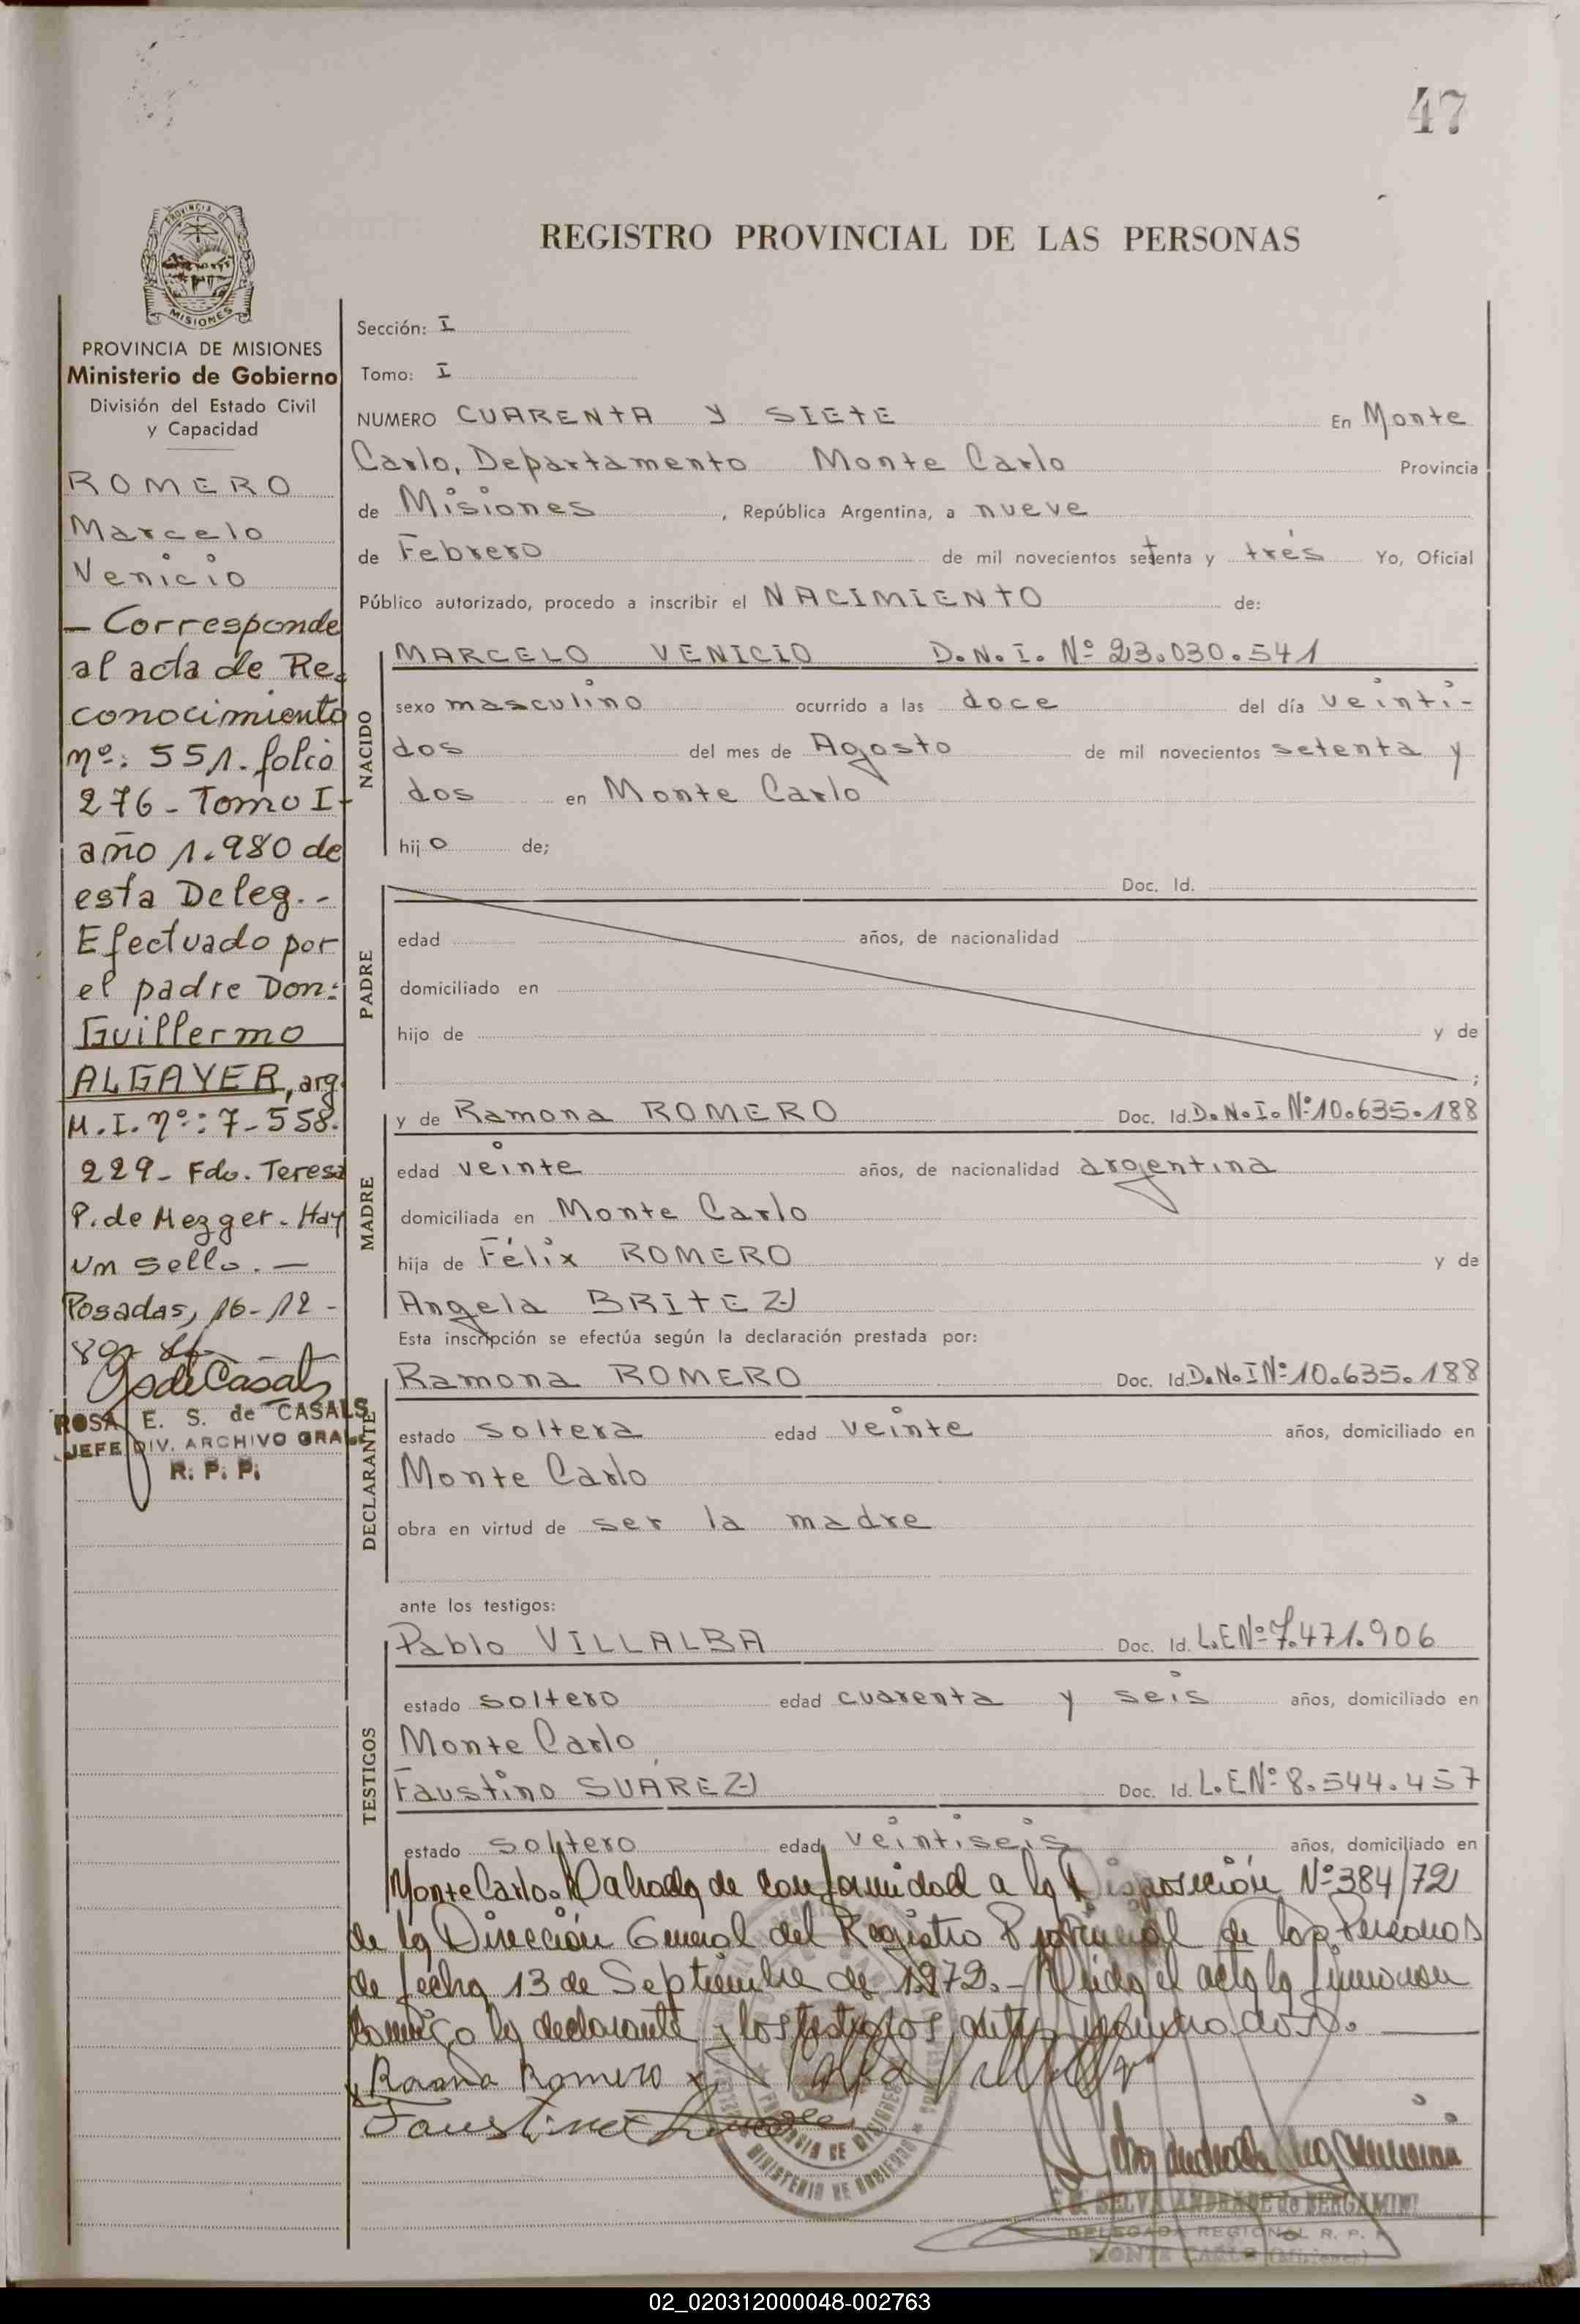 47
REGISTRO PROVINCIAL DE LAS PERSONAS
PROVINCIA DE
MISIONES
PROVINCIA DE MISIONES
Ministerio de Gobierno
División del Estado Civil
y Capacidad
ROMERO
Marcelo
Venicio
— Corresponde
al acta de Re-
conocimiento
nº: 551. folio
276 - Tomo I -
año 1.980 de
esta Deleg. -
Efectuado por
el padre Don:
Guillermo
ALGAYER, arg.
M.I. nº: 7-558.
229 - Fdo. Teresa
P. de Mezger - Hay
un sello. —
Posadas, 16-12-
80
ROSA E. S. de CASALS
JEFE DIV. ARCHIVO GRAL.
R. P. P.
Sección: I
Tomo: I
NUMERO CUARENTA Y SIETE En Monte
Carlo, Departamento Monte Carlo Provincia
de Misiones, República Argentina, a nueve
de Febrero de mil novecientos setenta y tres Yo, Oficial
Público autorizado, procedo a inscribir el NACIMIENTO de:
NACIDO
MARCELO VENICIO D.N.I. Nº 23.030.541
sexo masculino ocurrido a las doce del día veinti-
dos del mes de Agosto de mil novecientos setenta y
dos en Monte Carlo
hijo de;
PADRE
Doc. Id.
edad años, de nacionalidad
domiciliado en
hijo de y de
;
MADRE
y de Ramona ROMERO Doc. Id. D.N.I. Nº 10.635.188
edad veinte años, de nacionalidad argentina
domiciliada en Monte Carlo
hija de Félix ROMERO y de
Angela BRITEZ
Esta inscripción se efectúa según la declaración prestada por:
DECLARANTE
Ramona ROMERO Doc. Id. D.N.I Nº 10.635.188
estado soltera edad veinte años, domiciliado en
Monte Carlo
obra en virtud de ser la madre
ante los testigos:
TESTIGOS
Pablo VILLALBA Doc. Id. L.E Nº 7.471.906
estado soltero edad cuarenta y seis años, domiciliado en
Monte Carlo
Faustino SUÁREZ Doc. Id. L.E Nº 8.544.457
estado soltero edad veintiseis años, domiciliado en
Monte Carlo. de conformidad a la Disposición Nº 384/72
de la Dirección General del Registro Provincial de las Personas
de fecha 13 de Septiembre de 1972.- Leida el acta la firman
conmigo la declarante y los testigos
Ramona Romero
Faustino
MINISTERIO DE GOBIERNO
SELVA ANDRADE de BERGAMINI
DELEGADA REGIONAL R. P. P.
MONTE CARLO (Misiones)
02_020312000048-002763